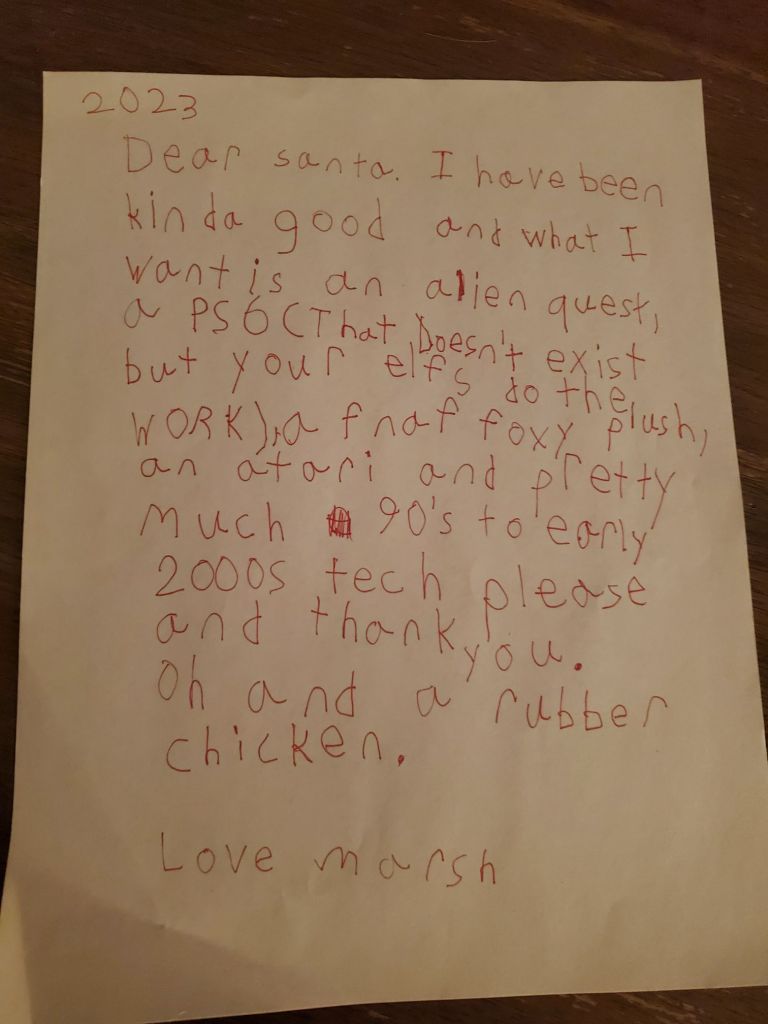 2023
Dear santa. I have been
kinda good and what I
want is an alien quest,
a PS6 (That Doesn't exist
but your elfs do the
WORK), a fnaf foxy plush,
an atari and pretty
much 90's to early
2000s tech please
and thank you.
Oh and a rubber
chicken.
Love marsh